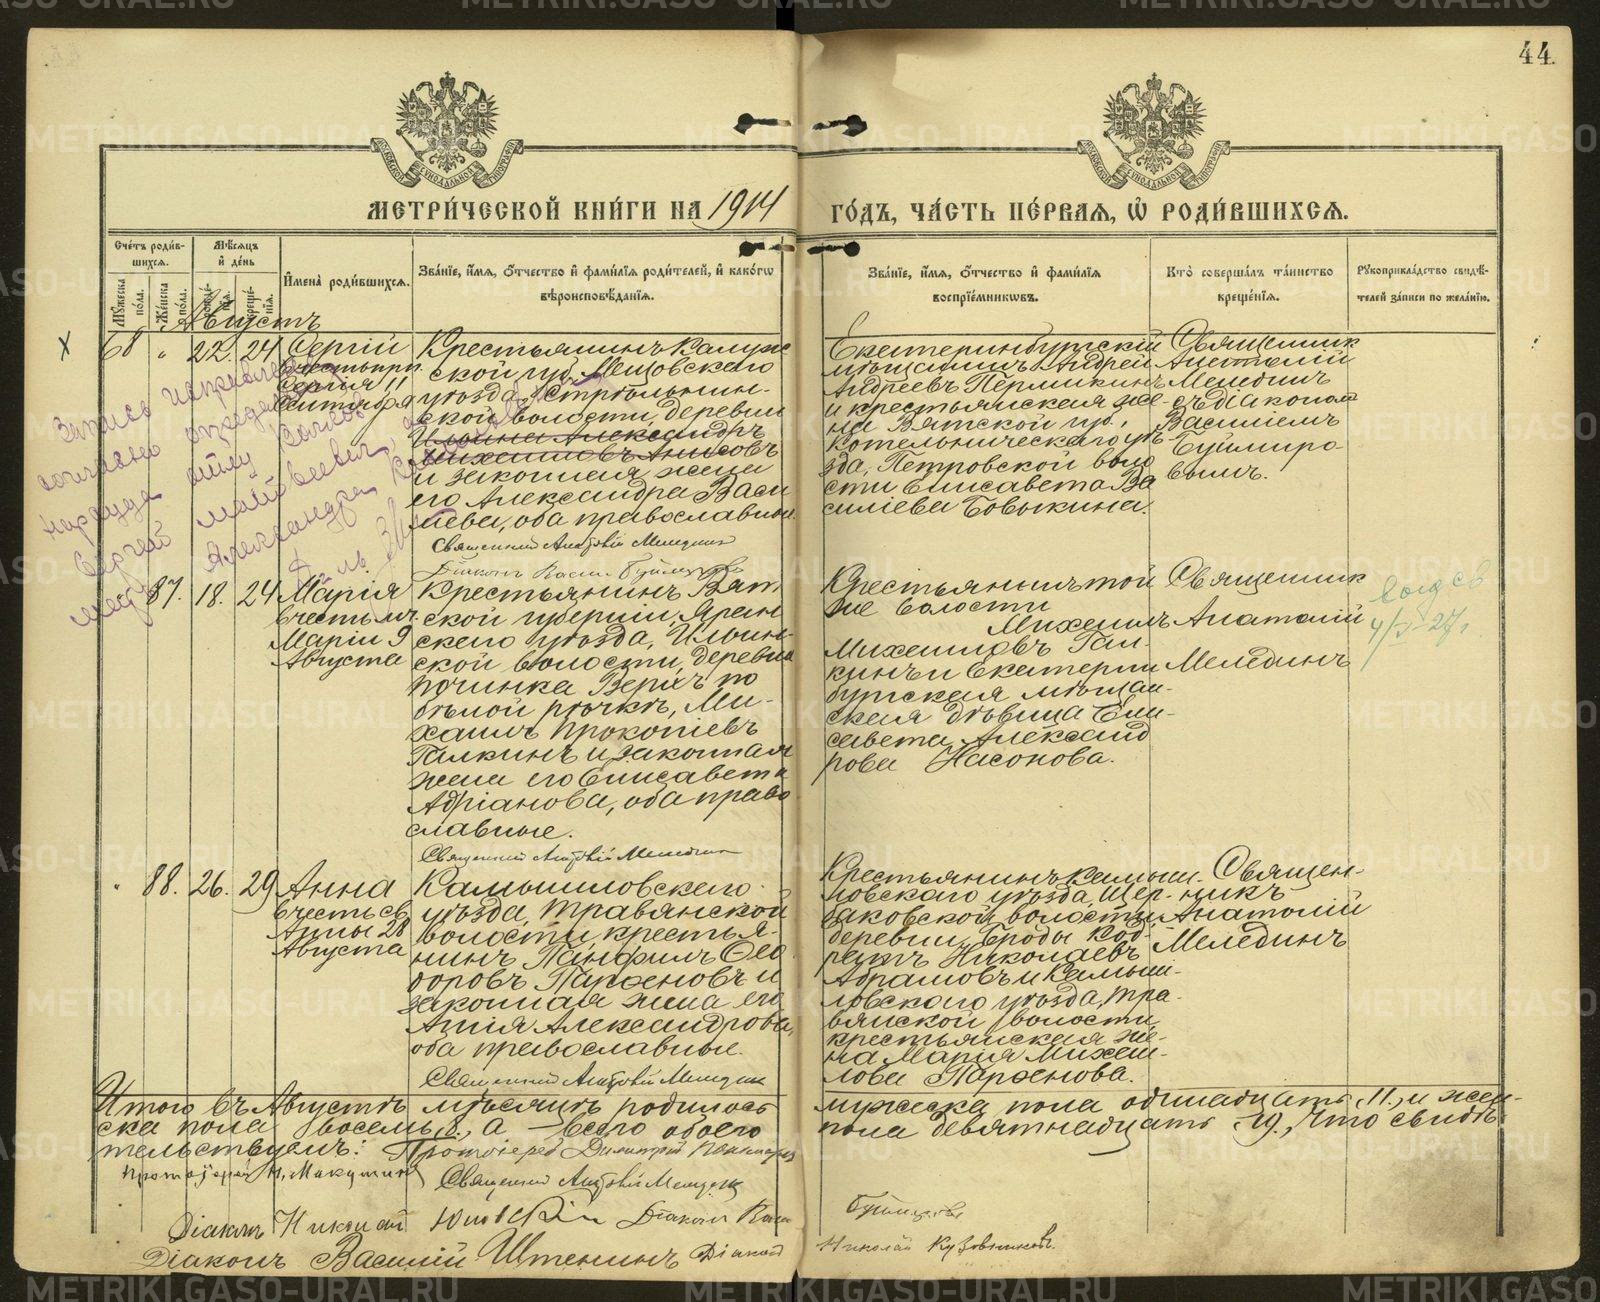 44.
МЕТРИЧЕСКОЙ КНИГИ НА 1914 ГОДЪ, ЧАСТЬ ПЕРВАЯ, Ѡ РОДИВШИХСЯ.
Счетъ родив-
шихся.
Мужеска пола.
Женска пола.
Мѣсяцъ
и день
рожде-
нія.
креще-
нія.
Имена родившихся.
Званіе, имя, отчество и фамилія родителей, и какогѡ
вѣроисповѣданія.
Званіе, имя, отчество и фамилія
воспріемникѡвъ.
Кто совершалъ таинство
крещенія.
Рукоприкладство свидѣ-
телей записи по желанію.
Августъ
68 " 22. 24
Сергій
въ честь прп.
Сергія
Сентября
Крестьянинъ Калуж
ской губ. Мещовскаго
уѣзда,
ской волости, деревни
Александръ
Михаиловъ
и законная жена
его Александра Васи
лiева, оба православные.
Священникъ Анатолій Меледин
Діаконъ Васил
Екатеринбургскій
мѣщанинъ Андрей
Андреевъ Пермикинъ
и крестьянская же-
на Вятской губ.,
Котельническаго уѣ-
зда, Петровской воло
сти Елисавета Ва
силіева Бовыкина.
Священникъ
Анатолій
Мелединъ
съ діакономъ
Василіемъ
Буймиро-
вымъ.
Запись исправлена
согласно определ
народа
Сергей
Матвеевич
Александра
87. 18. 24
Марія
въ честь мч.
Маріи 9
Августа
Крестьянинъ Вят
ской губерніи, Яран
скаго уѣзда, Ильин-
ской волости, деревни
починка Верхъ по
бѣлой рѣчкѣ, Ми-
хаилъ Прокопіевъ
Галкинъ и законная
жена его Елисавета
Адріанова, оба право
славные.
Священникъ Анатолій Меледин
Крестьянинъ той
же волости
Михаилъ
Михаиловъ Гал-
кинъ и Екатерин
бургская мѣщан-
ская дѣвица Ели-
савета Александ
рова Насонова.
Священник
Анатолій
Мелединъ
" 88. 26. 29
Анна
въ честь св.
Анны 28
Августа
Камышловскаго
уѣзда, Травянской
волости, крестья-
нинъ Панфилъ Ѳео
доровъ Парѳеновъ и
законная жена его
Александрова,
оба православные.
Священникъ Анатолій Меледин
Крестьянинъ Камыш-
ловскаго уѣзда, Щер-
баковской волости,
деревни Броды Код-
ратъ Николаевъ
Абрамовъ и Камыш-
ловскаго уѣзда, Тра-
вянской волости,
крестьянская же-
на Марія Михаи-
лова Парѳенова.
Священ-
никъ
Анатолій
Мелединъ
Итого въ Августѣ мѣсяцѣ родилось мужеска пола одинадцать 11., и жен-
ска пола восемь 8., а всего обоего пола девятнадцать 19., Что свидѣ-
тельствуемъ: Протоіерей Димитрій
Протоіерей Н. Макушин
Священникъ Анатолій Меледин
Діаконъ Николай
Діаконъ Васил
Діаконъ Василій Иштенинъ Діакон Николай Кузовниковъ.
METRIKI.GASO-URAL.RU